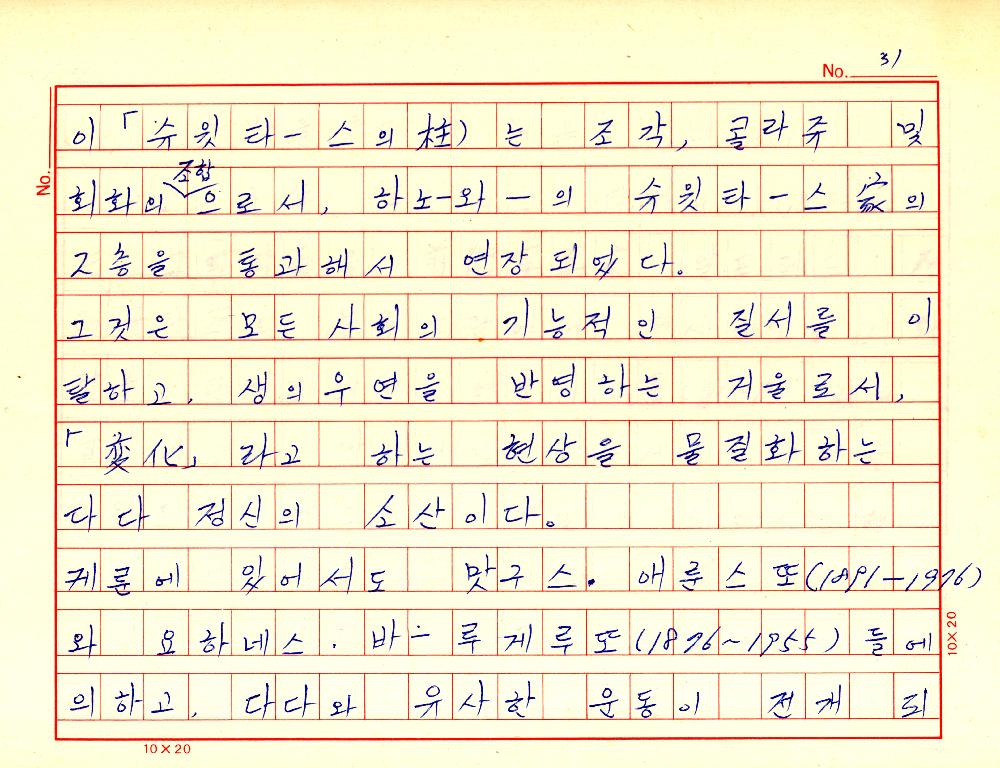 No. 31
No.
이 「슈윗타ー스의柱) 는 조각, 콜라쥬 및
조합
회화의 으로서, 하노ー와ー의 슈윗타ー스 家의
2층을 통과해서 연장되었다.
그것은 모든 사회의 기능적인 질서를 이
탈하고, 생의우연을 반영하는 거울로서,
「変化」 라고 하는 현상을 물질화하는
다다 정신의 소산이다.
케룬에 있어서도 맛구스. 애룬스또(1891-1976)
와 요하네스. 바ー루게루또(1876~1955) 들에
의하고, 다다와 유사한 운동이 전개 되
10×20
10×20